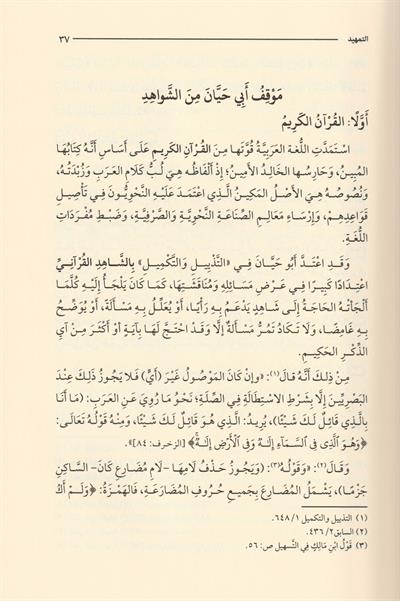 التمهيد ٣٧
مَوْقِفُ أَبِي حَيَّانَ مِنَ الشَّوَاهِدِ
أَوَّلًا: القُرْآنُ الكَرِيمُ
اسْتَمَدَّتِ اللُّغَة العَرَبِيَّةُ قُوَّتَهَا مِنَ القُرْآنِ الكَرِيمِ عَلَى أَسَاسِ أَنَّهُ كِتَابُهَا
المُبِينُ، وَحَارِسُها الخَالِدُ الأَمِينُ؛ إِذْ أَلْفَاظُهُ هِيَ لُبُّ كَلَامِ العَرَبِ وَزُبْدَتُهُ،
وَنُصُوصُهُ هِيَ الأَصْلُ المَكِينُ الَّذِي اعْتَمَدَ عَلَيْهِ النَّحْوِيُّونَ فِي تَأْصِيلِ
قَوَاعِدِهِمْ، وَإِرْسَاءِ مَعَالِمِ الصِّنَاعَةِ النَّحْوِيَّةِ وَالصَّرْفِيَّةِ، وَضَبْطِ مُفْرَدَاتِ
اللُّغَةِ.
وَقَدِ اعْتَدَّ أَبُو حَيَّانَ فِي «التَّذْيِيلِ وَالتَّكْمِيلِ» بِالشَّاهِدِ القُرْآنِيِّ
اعْتِدَادًا كَبِيرًا فِي عَرْضِ مَسَائِلِهِ وَمُنَاقَشَتِهَا، كَمَا كَانَ يَلْجَأُ إِلَيْهِ كُلَّمَا
أَلْجَأَتْهُ الحَاجَةُ إِلَى شَاهِدٍ يَدْعَمُ بِهِ رَأْيًا، أَوْ يُعَلِّلُ بِهِ مَسْأَلَةً، أَوْ يُوَضِّحُ
بِهِ غَامِضًا، وَلَا تَكَادُ تَمُرُّ مَسْأَلَةٌ إِلَّا وَقَدْ احْتَجَّ لَهَا بِآيَةٍ أَوْ أَكْثَرَ مِنْ آيِ
الذِّكْرِ الحَكِيمِ.
مِنْ ذلِكَ أَنَّهُ قالَ(١): «وإنْ كانَ المَوْصُولُ غَيْرَ (أَيٍّ) فَلا يَجُوزُ ذَلِكَ عِنْدَ
البَصْرِيِّينَ إِلَّا بِشَرطِ الاسْتِطالَةِ فِي الصِّلَةِ؛ نَحْوُ مَا رُوِيَ عَنِ العَرَبِ: (مَا أَنَا
بِالَّذِي قَائِلٌ لَكَ شَيْئًا)، يُرِيدُ: الَّذِي هُوَ قَائِلٌ لَكَ شَيْئًا، وَمِنْهُ قَوْلُهُ تَعَالَى:
﴿وَهُوَ الَّذِى فِى السَّمَآءِ إِلَٰهٌ وَفِى الْأَرْضِ إِلَٰهٌ﴾ [الزخرف: ٨٤]».
وَقَالَ(٢): «وَقَوْلُهُ(٣): (وَيَجُوزُ حَذْفُ لَامِهَا -لَامِ مُضَارِعِ كَانَ- السَّاكِنِ
جَزْمًا)، يَشْمَلُ المُضَارِعَ بِجَمِيعِ حُرُوفِ المُضَارَعَةِ، فَالهَمْزَةُ: ﴿وَلَمْ أَكُ
(١) التذييل والتكميل ١/ ٦٤٨.
(٢) السابق ٢/ ٤٣٦.
(٣) قَوْلُ ابْنِ مَالِكٍ فِي التَّسهيل ص: ٥٦.